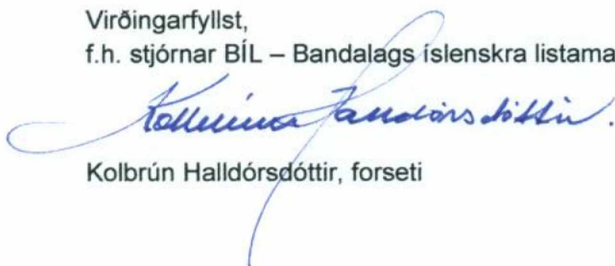 Virðingarfyllst,
f.h. stjórnar BÍL – Bandalags íslenskra listama
Kolbrún Halldórsdóttir.
Kolbrún Halldórsdóttir, forseti